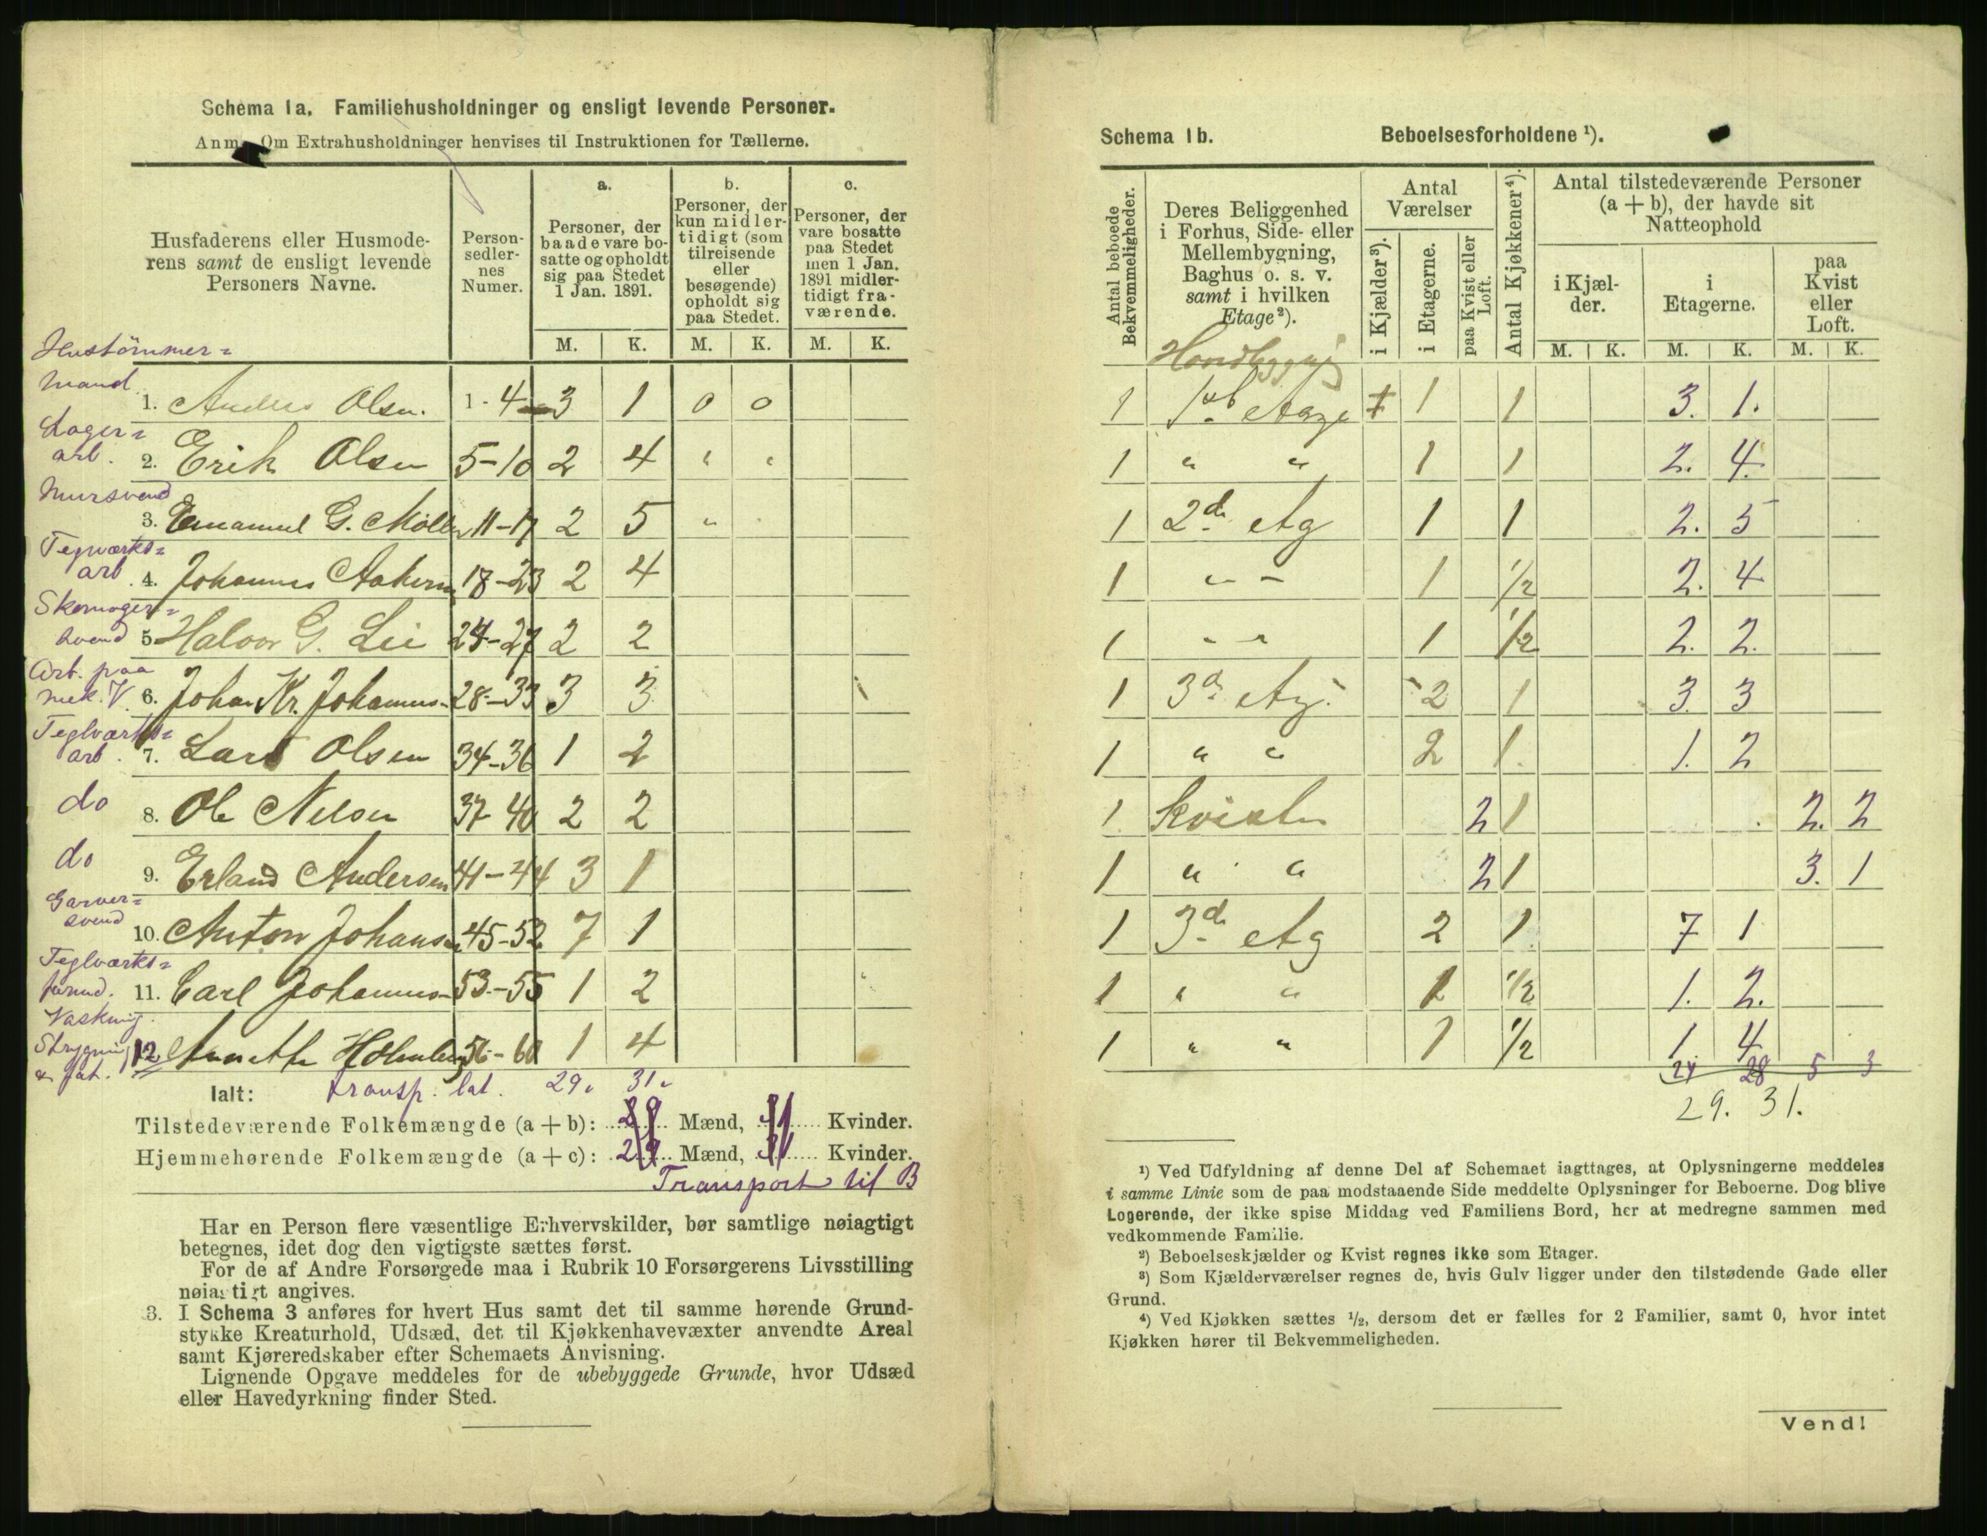 Schema 1a. Familiehusholdninger og ensligt levende Personer.
Anm. Om Extrahusholdninger henvises til Instruktionen for Tællerne.
Husfaderens eller Husmoderens samt de ensligt levende Personers Navne.
Person-sedler-nes Numer.
a.
Personer, der baade vare bosatte og opholdt sig paa Stedet 1 Jan. 1891.
b.
Personer, der kun midlertidigt (som tilreisende eller besøgende) opholdt sig paa Stedet.
c.
Personer, der vare bosatte paa Stedet men 1 Jan. 1891 midlertidigt fraværende.
M. K. M. K. M. K.
Hustömmer=
mand 1. Anders Olsen. 1-4 3 1 0 0
Lager=
arb. 2. Erik Olsen 5-10 2 4 " "
Mursvend
3. Emanuel G. Mölle 11-17 2 5 "
Teglværks=
arb. 4. Johannes 18-23 2 4
Skomager=
svend 5. Halvor G. Lie 24-27 2 2
Arb. paa
mek. V. 6. Johan Kr. Johannes 28-33 3 3
Teglværks=
arb. 7. Lars Olsen 34-36 1 2
do 8. Ole Nilsen 37-40 2 2
do 9. Erland Andersen 41-44 3 1
Garver=
svend 10. Anton Johans 45-52 7 1
Teglværks=
11. Carl Johannes 53-55 1 2
Vaskning
Strygning 12 Anethe Holmberg 56-60 1 4
& fat.
Ialt: transp. lat. 29. 31.
Tilstedeværende Folkemængde (a + b): 29 Mænd, 31 Kvinder.
Hjemmehørende Folkemængde (a + c): 29 Mænd, 31 Kvinder.
Transport til B
Har en Person flere væsentlige Erhvervskilder, bør samtlige nøiagtigt
betegnes, idet dog den vigtigste sættes først.
For de af Andre Forsørgede maa i Rubrik 10 Forsørgerens Livsstilling
nøiagtigt angives.
3. I Schema 3 anføres for hvert Hus samt det til samme hørende Grund-
stykke Kreaturhold, Udsæd, det til Kjøkkenhavevæxter anvendte Areal
samt Kjøreredskaber efter Schemaets Anvisning.
Lignende Opgave meddeles for de ubebyggede Grunde, hvor Udsæd
eller Havedyrkning finder Sted.
Schema 1b. Beboelsesforholdene ¹).
Antal beboede Bekvemmeligheder.
Deres Beliggenhed i Forhus, Side- eller Mellembygning, Baghus o. s. v. samt i hvilken Etage ²).
Antal Værelser
i Kjælder ³).
i Etagerne.
paa Kvist eller Loft.
Antal Kjøkkener ⁴).
Antal tilstedeværende Personer (a + b), der havde sit Natteophold
i Kjælder.
i Etagerne.
paa Kvist eller Loft.
M. K. M. K. M. K.
1 1 1 3. 1.
1 " " 1 1 2. 4.
1 2de Etg 1 1 2. 5
1 " - 1 1/2 2. 4
1 " " 1 1/2 2. 2.
1 3de Etg. 2 1 3. 3
1 " " 2 1. 1. 2
1 Kvisten 2 1 2. 2
1 " " 2 1 3. 1
1 3de Etg 2 1 7 1
1 " " 1 1/2 1. 2.
1 " " 1 1/2 1 4
24 28 5 3
29. 31.
¹) Ved Udfyldning af denne Del af Schemaet iagttages, at Oplysningerne meddeles
i samme Linie som de paa modstaaende Side meddelte Oplysninger for Beboerne. Dog blive
Logerende, der ikke spise Middag ved Familiens Bord, her at medregne sammen med
vedkommende Familie.
²) Beboelseskjælder og Kvist regnes ikke som Etager.
³) Som Kjælderværelser regnes de, hvis Gulv ligger under den tilstødende Gade eller
Grund.
⁴) Ved Kjøkken sættes ½, dersom det er fælles for 2 Familier, samt 0, hvor intet
Kjøkken hører til Bekvemmeligheden.
Vend!